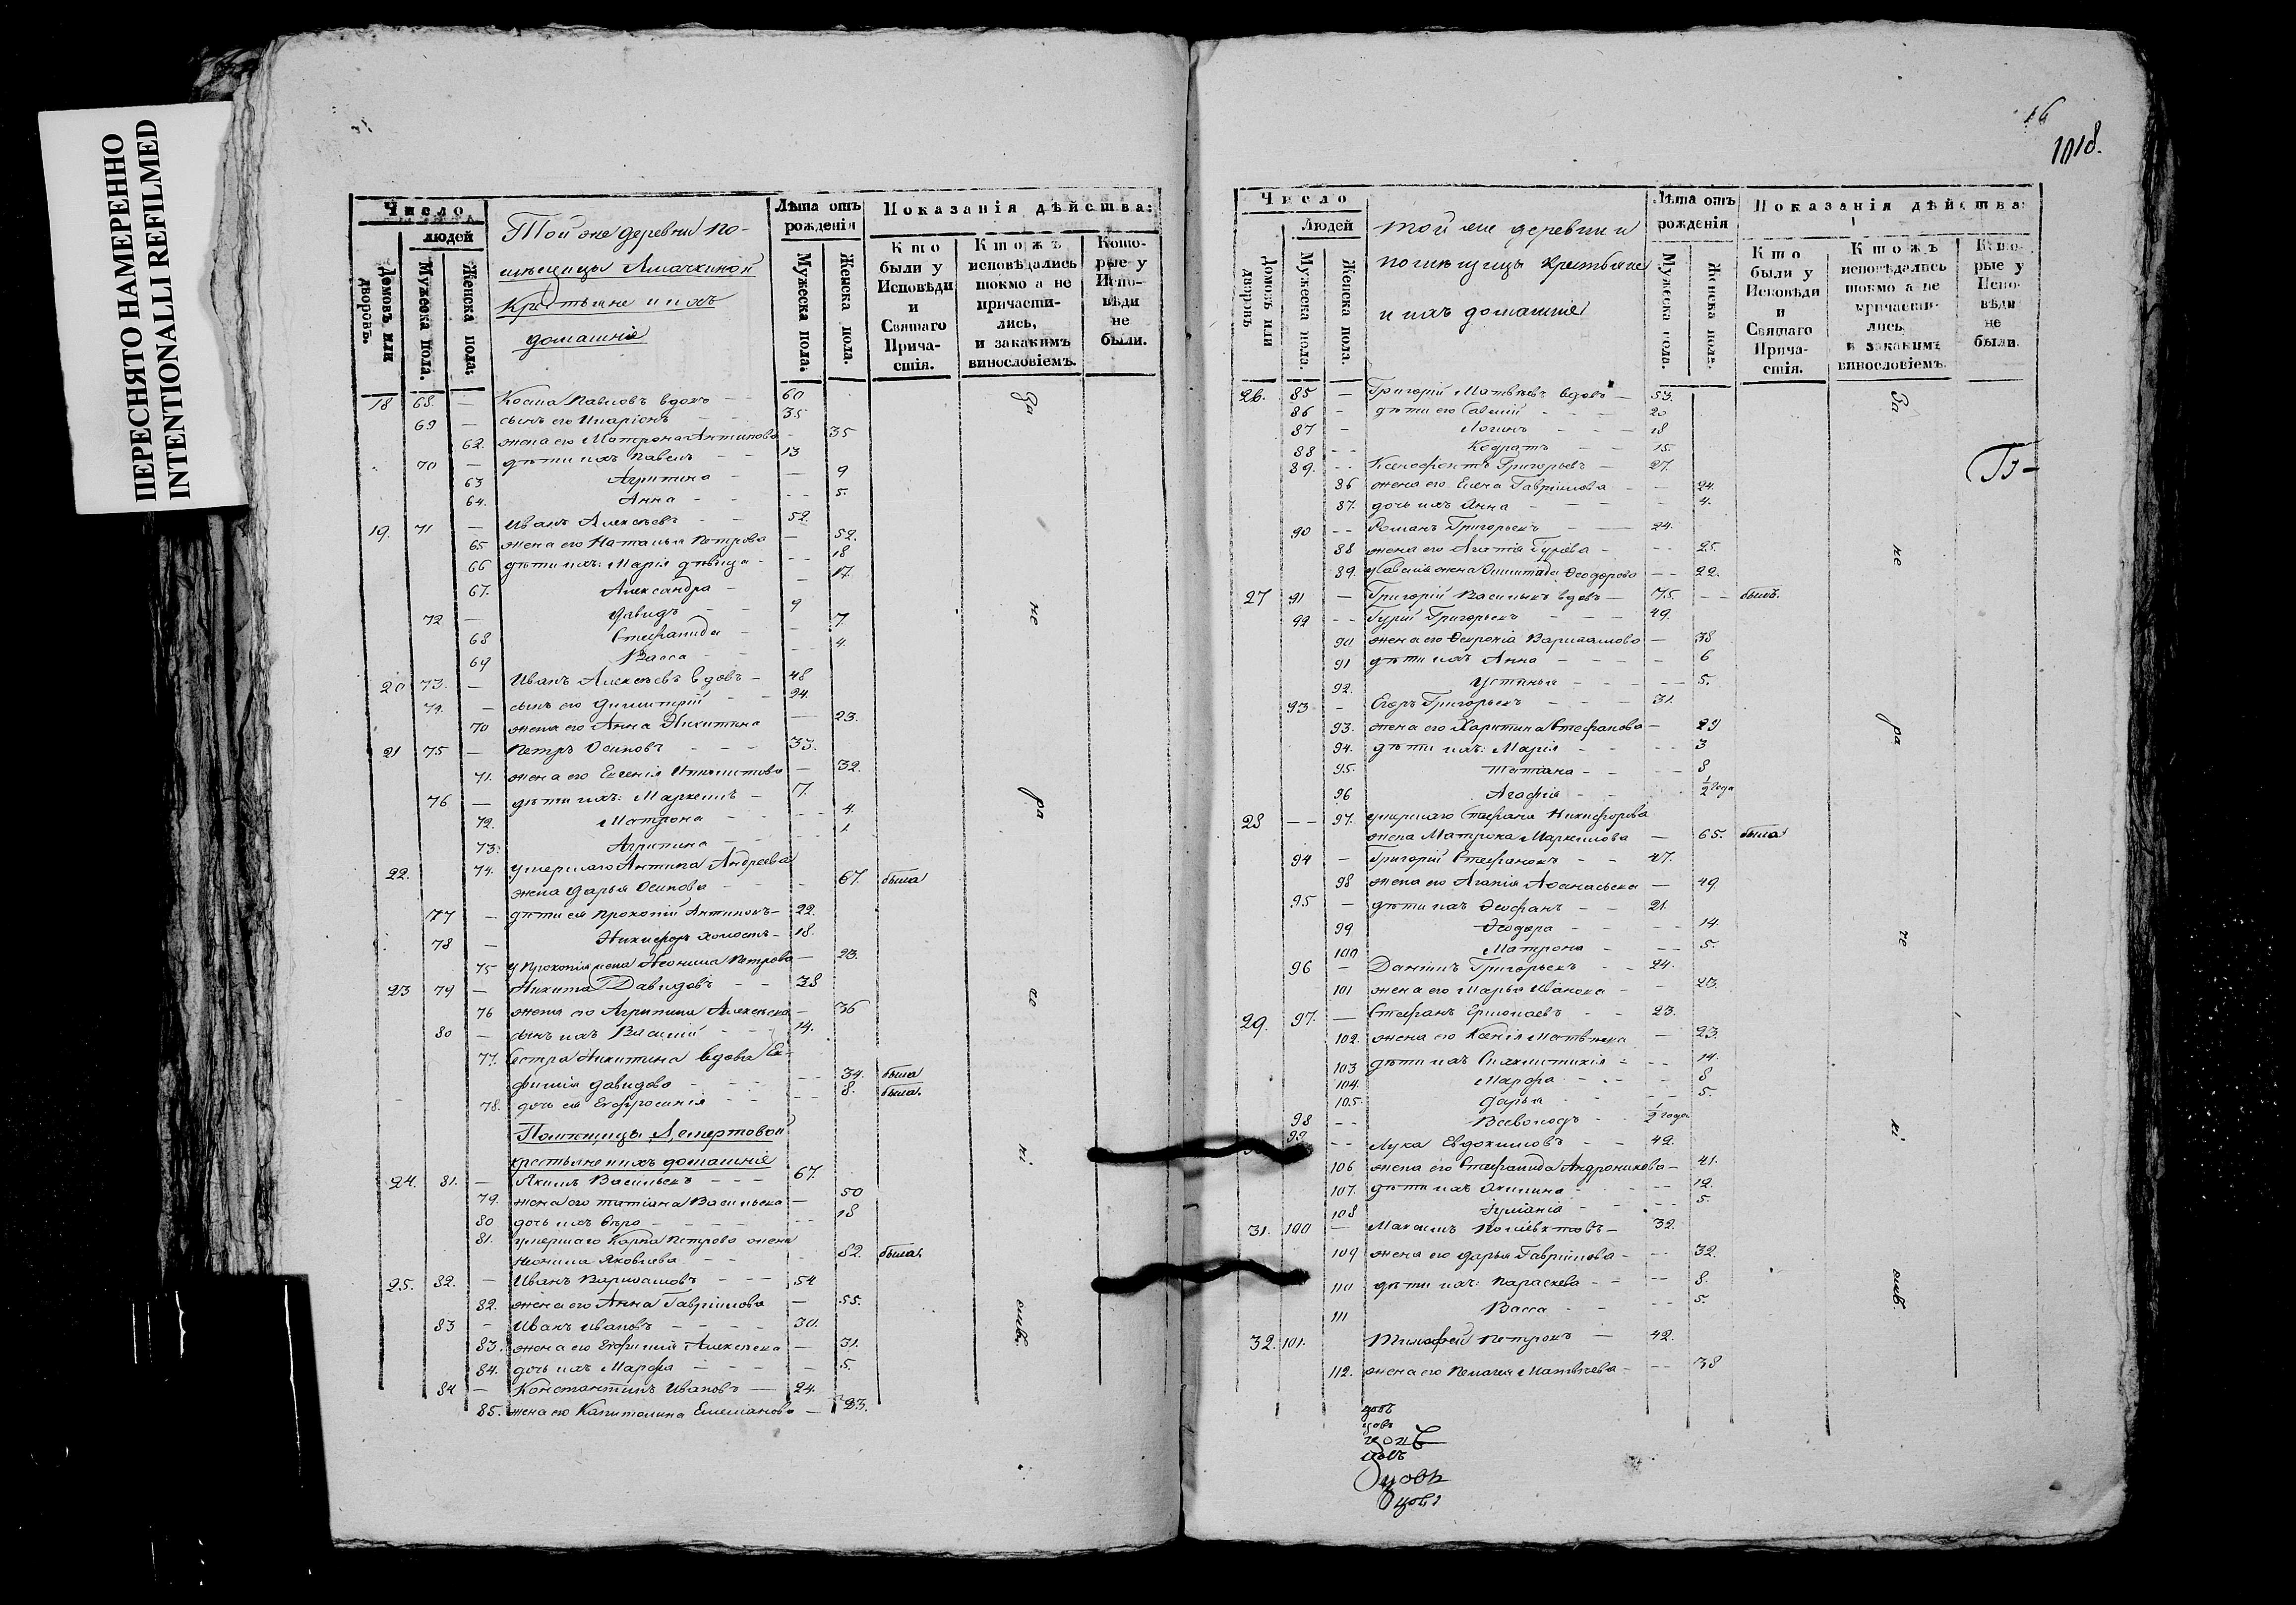 ПЕРЕСНЯТО НАМЕРЕННО
INTENTIONALLI REFILMED
Число
людей
Домовъ или дворовъ.
Мужеска пола.
Женска пола.
Той же деревни по-
мѣщицы
Крестьяне и ихъ
домашніе
Лѣта отъ рожденія
Мужеска пола.
Женска пола.
Показанія дѣйства:
Кто были у Исповѣди и Святаго Причастія.
Ктожъ исповѣдались токмо а не причастились, и закакимъ винословіемъ.
Которые у Исповѣди не были.
18 68. — Косма Павловъ вдовъ — 60
69 — сынъ его Иларіонъ 35
62. жена его Матрона Антипова — 35
70 — дѣти ихъ Павелъ — 13
63 Агрипина — 9
64. Анна — 5.
19. 71 — Иванъ Алексѣевъ — 52.
65 жена его Наталья Петрова — 52.
66 дѣти ихъ: Марія дѣвица — 18
67. Александра — 17.
72 — Давидъ — 9
68 Стефанида — 7.
69 Васса — 4.
20 73. — Иванъ Алексѣевъ вдовъ — 48
74. — сынъ его Димитрій — 24.
70 жена его Анна Никитина — 23.
21 75 — Петръ Осиповъ — 33.
71. жена его Евгенія — 32.
76 — дѣти ихъ: Маркеллъ — 7.
72. Матрона — 4.
73. Агрипина — 1
22. 74. умершаго Антипа Андреева
жена Дарья Осипова — 67. была
77 — дѣти ея Прокопій Антиповъ — 22.
78 — Никифоръ холостъ — 18.
75 у Прокопія жена Неонила Петрова — 23.
23 79 — Никита Давидовъ — 38
76 жена его Агрипина Алексѣева — 36
80 — сынъ ихъ Василій — 14.
77. Сестра Никитина вдова Ев-
фимія Давидова — 34. была
78. дочь ея Евфросинія — 8. была.
Помѣщицы
крестьяне и ихъ домашніе
24. 81. — Якимъ Васильевъ — 67.
79. жена его Татіана Васильева — 50
80 дочь ихъ Вѣра — 18
81. умершаго Карпа Петрова жена
Неонила Яковлева — 82. была.
25. 82. — Иванъ Варлаамовъ — 54
82. жена его Анна Гавріилова — 55.
83 — Иванъ Ивановъ — 30.
83. жена его Евфимія Алексѣева — 31.
84. дочь ихъ Марфа — 5.
84 — Константинъ Ивановъ — 24.
85. жена его Капитолина Емельянова — 23.
За не ра че ні емъ.
16
1018.
Число
Людей
Домовъ или дворовъ
Мужеска пола.
Женска пола.
той же деревни и
помѣщицы крестьяне
и ихъ домашніе
Лѣта отъ рожденія
Мужеска пола.
Женска пола.
Показанія дѣйства:
Кто были у Исповѣди и Святаго Причастія.
Ктожъ исповѣдались токмо а не причастились и закакимъ винословіемъ.
Которые у Исповѣди не были.
26. 85 — Григорій Матвѣевъ вдовъ — 53.
86 — дѣти его Савелій — 20
87 — Логинъ — 18
88 — Кодратъ — 15.
89. — Ксенофонтъ Григорьевъ — 27.
86 жена его Елена Гавріилова — 24.
87. дочь ихъ Анна — 4.
90 — Романъ Григорьевъ — 24.
88 жена его Агапія Гуріева — 25.
89. у Савелія жена Ѳеодорова — 22.
27 91 — Григорій Васильевъ вдовъ — 75. — былъ.
92 — Гурій Григорьевъ — 49.
90 жена его Варлаамова — 38
91 дѣти ихъ Анна — 6
92. Устинья — 5.
93 — Егоръ Григорьевъ — 31.
93. жена его Харитина Стефанова — 29
94. дѣти ихъ: Марія — 3
95. Татіана — 8
96 Агафія — 1/2 года
28 — 97. умершаго Стефана Никифорова
жена Матрона Маркеллова — 65. была
94 — Григорій Стефановъ — 47.
98 жена его Агапія Аѳанасьева — 49
95 — дѣти ихъ Ѳеофанъ — 21.
99 Ѳеодора — 14.
100 Матрона — 5.
96 — Даніилъ Григорьевъ — 24.
101 жена его Марья Иванова — 23.
29. 97. — Стефанъ Ермолаевъ — 23.
102. жена его Ксенія Матвѣева — 23.
103 дѣти ихъ Синклитикія — 14.
104. Марфа — 8
105. Дарья — 5.
98 — Всеволодъ — 1/2 года
99 — Лука Евдокимовъ — 42.
106 жена его Стефанида Андроникова — 41.
107. дѣти ихъ Акилина — 12.
108 Іуліанія — 5.
31. 100 — Максимъ Поліевктовъ — 32.
109 жена его Дарья Гавріилова — 32.
110 дѣти ихъ: Параскева — 8.
111 Васса — 5.
32. 101. Тимофей Петровъ — 42.
112. жена его Пелагея Матвѣева — 38
За не ра че ні емъ.